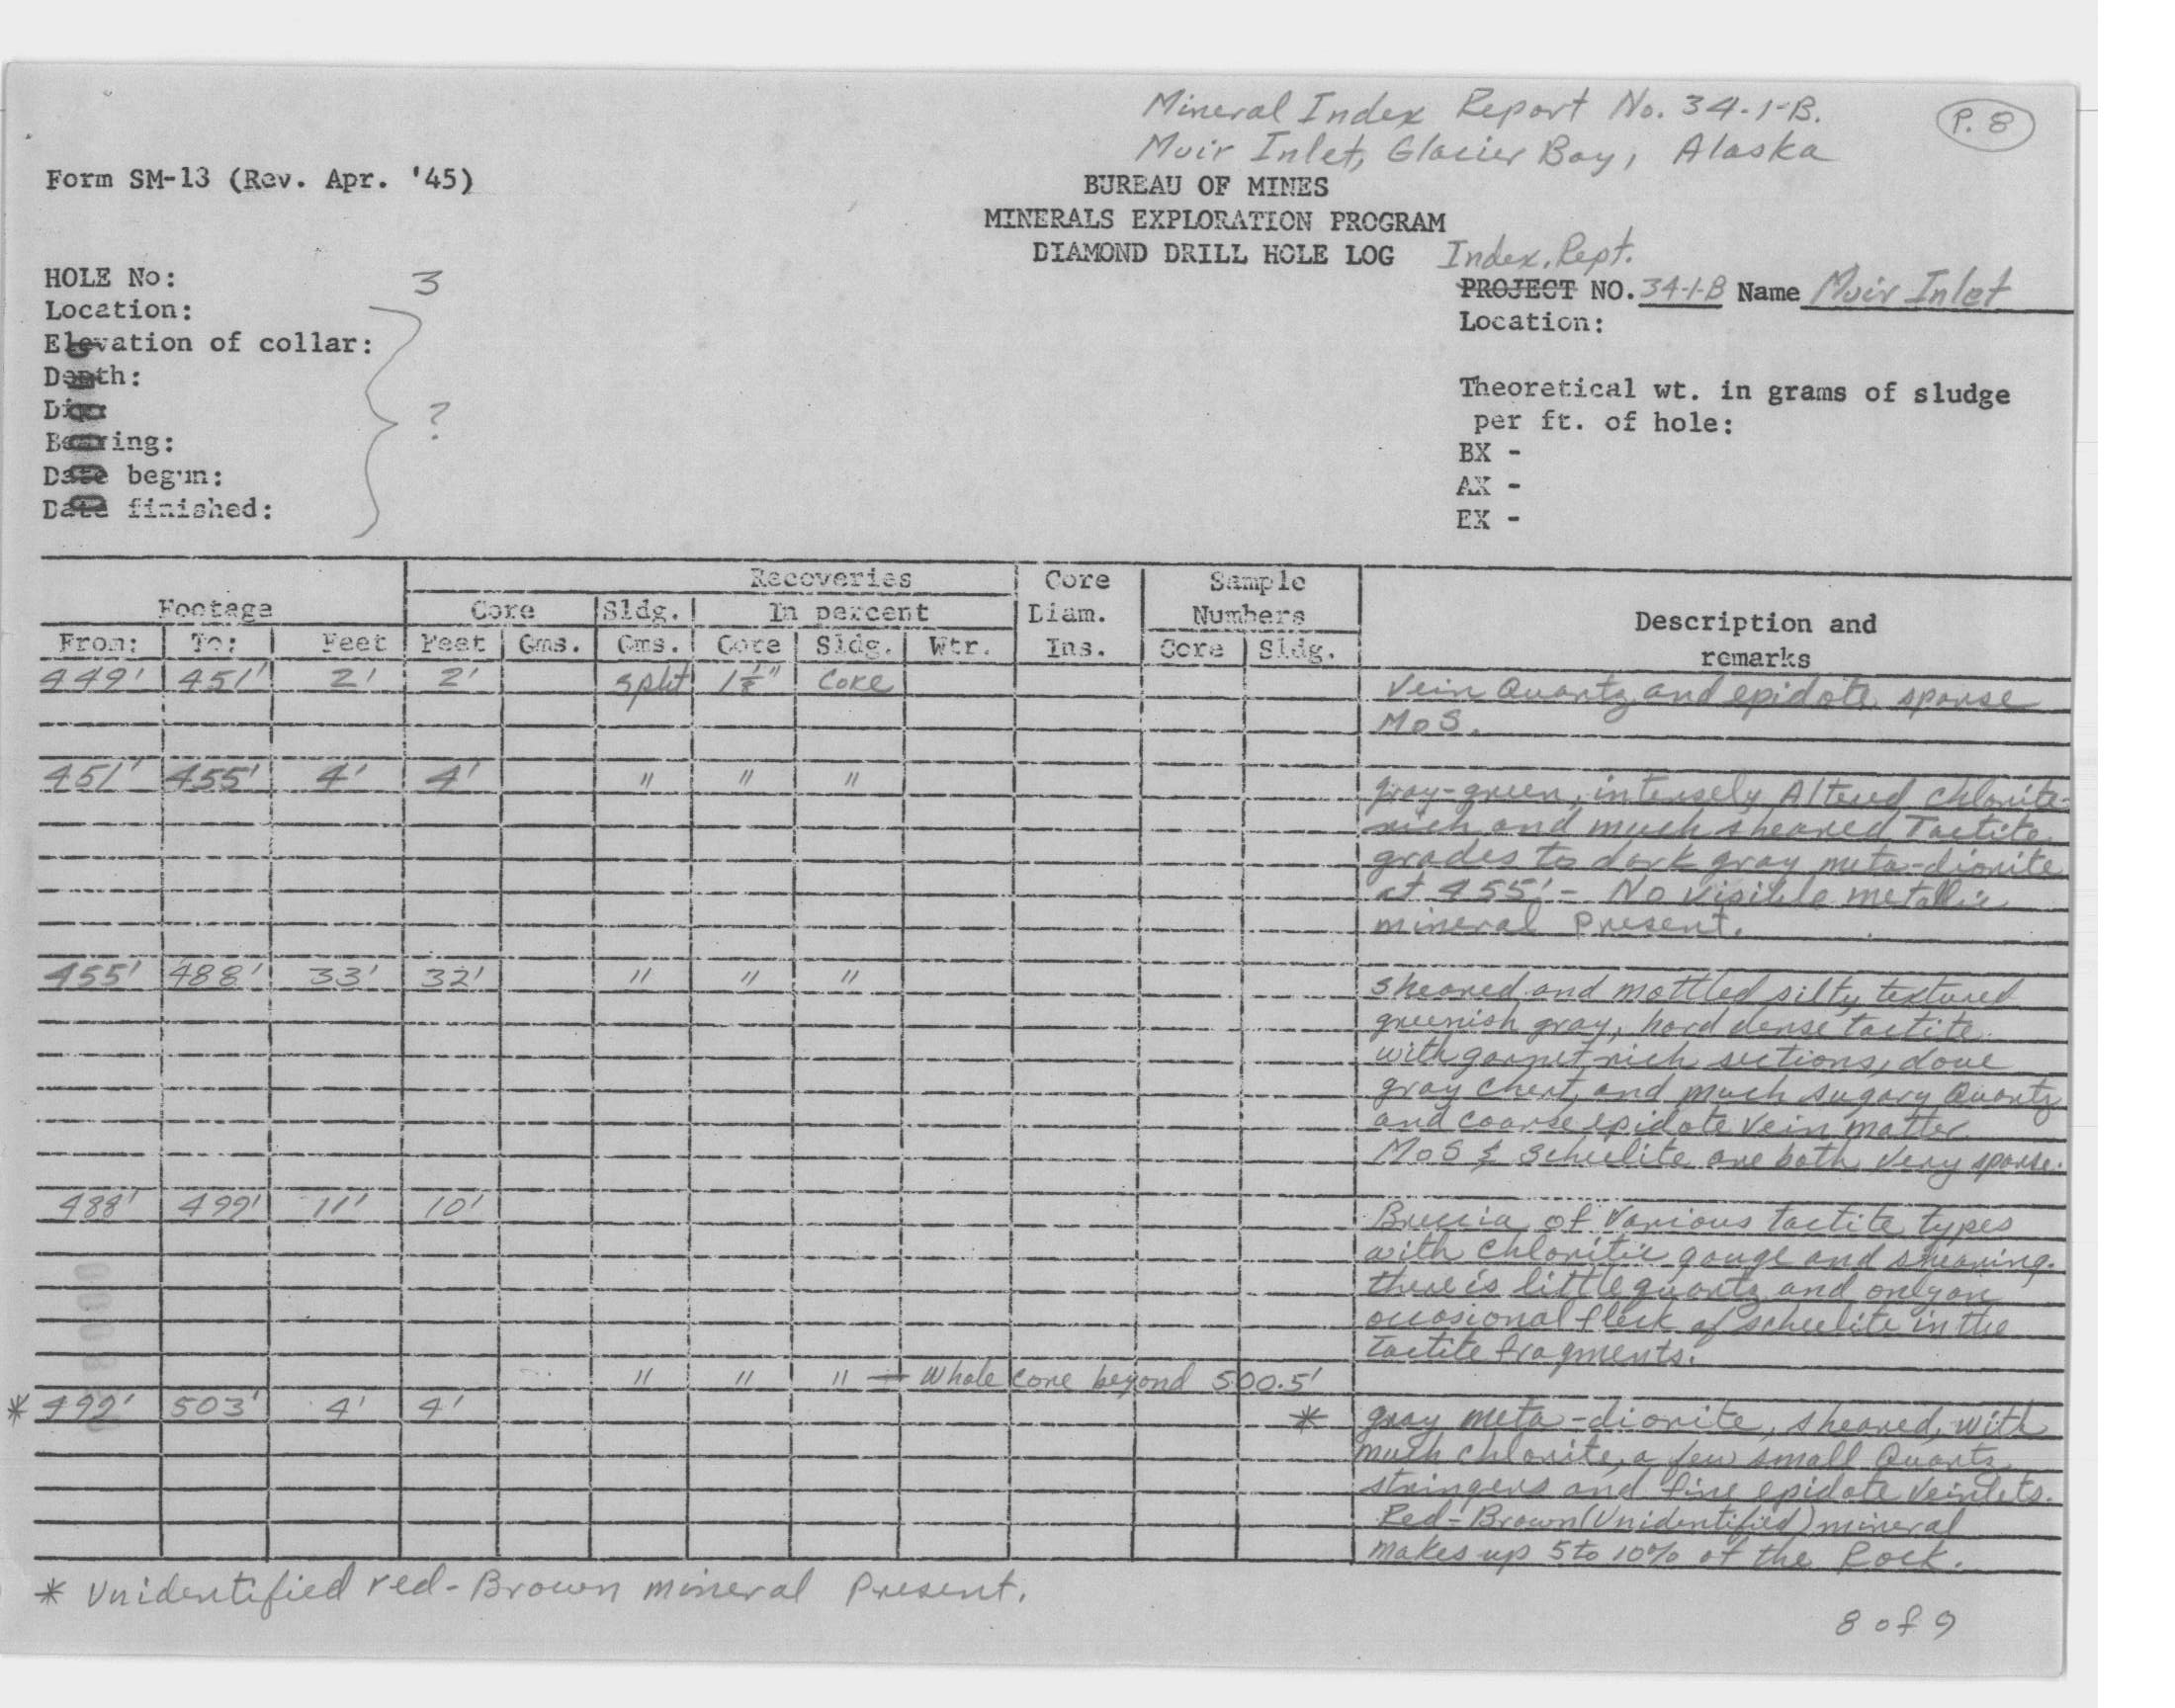 Mineral Index Report No. 34-1-B.
P. 8
Muir Inlet, Glacier Bay, Alaska
Form SM-13 (Rev. Apr. '45)
BUREAU OF MINES
MINERALS EXPLORATION PROGRAM
DIAMOND DRILL HOLE LOG
Index. Rept.
HOLE No: 3
PROJECT NO. 34-1-B Name Muir Inlet
Location:
Location:
Elevation of collar:
Depth:
Theoretical wt. in grams of sludge
Dip:
?
per ft. of hole:
Bearing:
BX -
Date begun:
AX -
Date finished:
EX -
Recoveries Core Sample
Footage Core Sldg. In percent Diam. Numbers Description and
From: To: Feet Feet Gms. Gms. Core Sldg. Wtr. Ins. Core Sldg. remarks
449' 451' 2' 2' split 1 1/8" Core Vein Quartz and epidote sparse
MoS.
451' 455' 4' 4' " " " gray-green, intensely Altered chlorite-
rich and much sheared Tactite
grades to dark gray meta-diorite
at 455' - No visible metallic
mineral Present.
455' 488' 33' 32' " " " Sheared and mottled silty textured
greenish gray, hard dense tactite
with garnet rich sections, dove
gray chert, and much sugary Quartz
and coarse epidote vein matter
MoS & Scheelite are both very sparse.
488' 499' 11' 10' Breccia of various tactite types
with chloritic gouge and shearing.
there is little quartz and only an
occasional fleck of scheelite in the
Tactite fragments.
" " " — Whole core beyond 500.5'
* 492' 503' 4' 4' * gray meta-diorite, sheared, with
much chlorite, a few small Quartz
stringers and fine epidote veinlets.
Red-Brown (Unidentified) mineral
makes up 5 to 10% of the Rock.
* Unidentified red-Brown mineral Present.
8 of 9